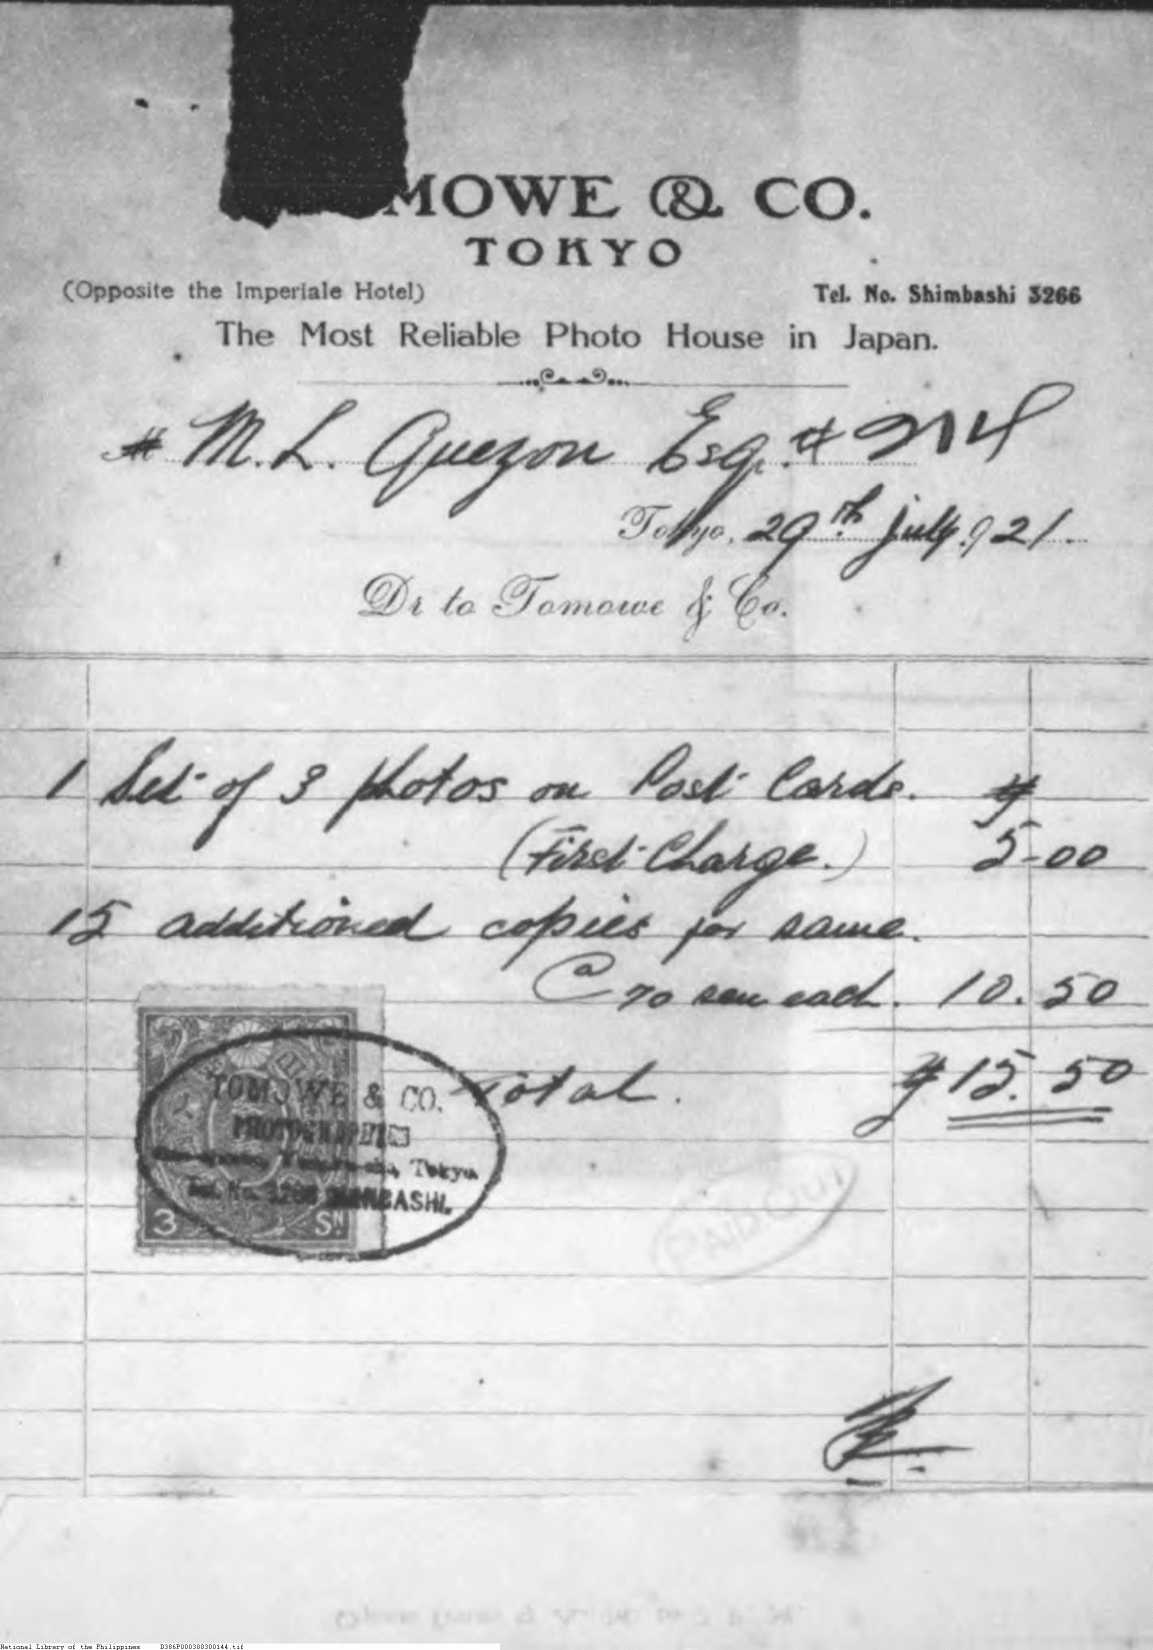 MOWE & CO.
TOKYO
(Opposite the Imperiale Hotel)
Tel. No. Shimbashi 3266
The Most Reliable Photo House in Japan.
# M. L. Quezon Esq. # 214
Tokyo, 29th July. 921.
Dr to Tomowe & Co.
1 Set of 3 photos on Post Cards. ¥
(First Charge.) 5-00
15 additioned copies for same.
@ 70 sen each. 10.50
Total. ¥ 15.50
TOMOWE & CO.
PHOTOGRAPHER
Tokyo.
Tel. No. 3266 SHIMBASHI.
3 SN
PAID OUT
National Library of the Philippines D386P000300300144.tif